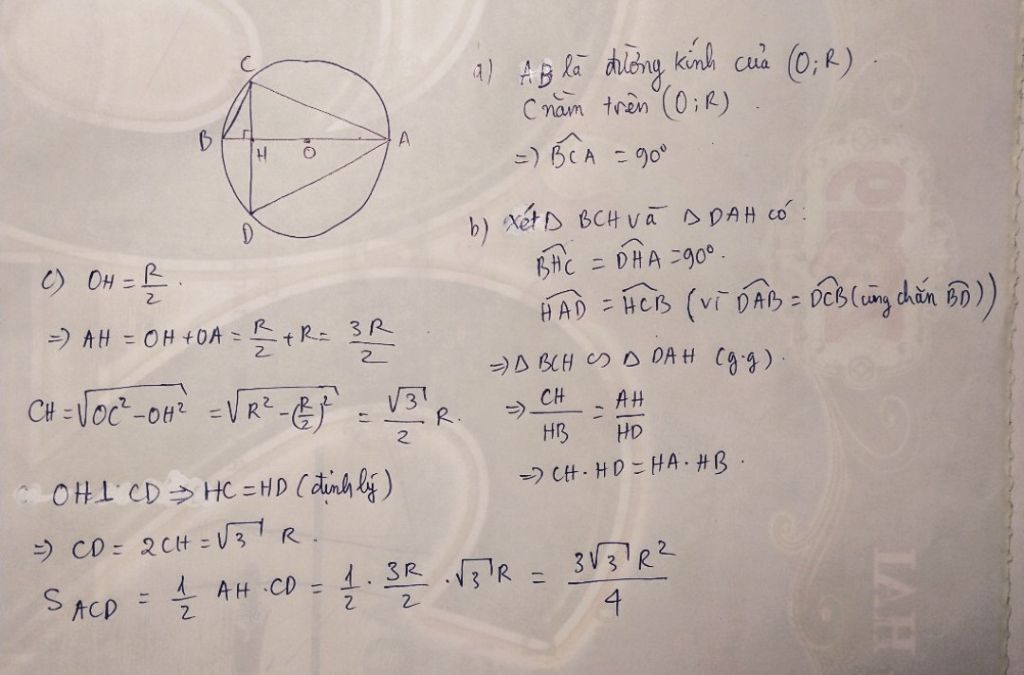 C
B
H
O
A
D
a) AB là đường kính của (O;R).
C nằm trên (O;R).
=> \widehat{BCA} = 90°
b) Xét Δ BCH và Δ DAH có:
\widehat{BHC} = \widehat{DHA} = 90°.
\widehat{HAD} = \widehat{HCB} (vì \widehat{DAB} = \widehat{DCB} (cùng chắn \widehat{BD}))
=> Δ BCH ∽ Δ DAH (g.g).
=> \frac{CH}{HB} = \frac{AH}{HD}
=> CH · HD = HA · HB.
c) OH = \frac{R}{2}.
=> AH = OH + OA = \frac{R}{2} + R = \frac{3R}{2}.
CH = \sqrt{OC^2 - OH^2} = \sqrt{R^2 - (\frac{R}{2})^2} = \frac{\sqrt{3}}{2} R.
OH ⊥ CD => HC = HD (định lý)
=> CD = 2CH = \sqrt{3} R.
S_{ACD} = \frac{1}{2} AH · CD = \frac{1}{2} · \frac{3R}{2} · \sqrt{3} R = \frac{3\sqrt{3} R^2}{4}